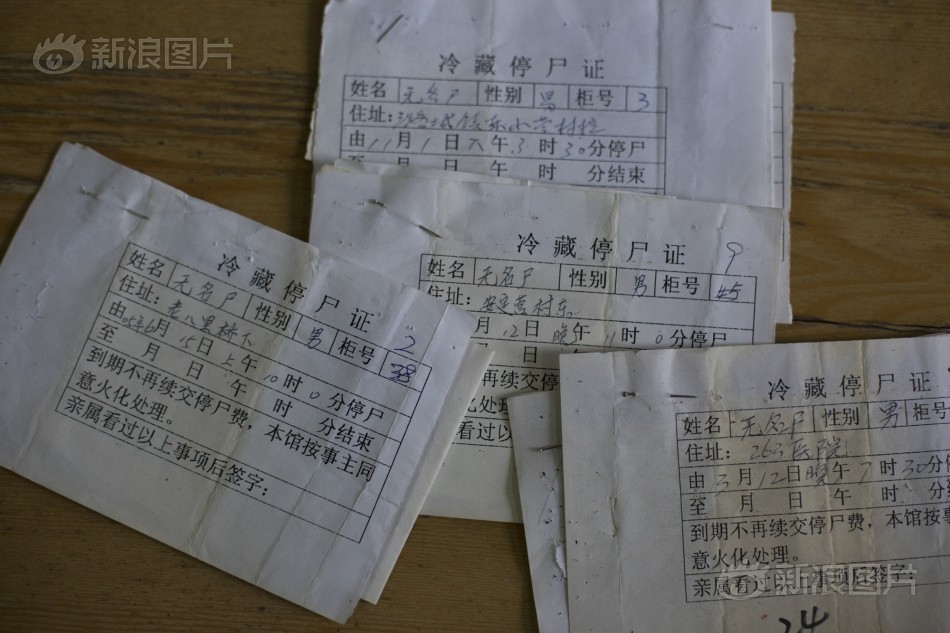 新浪图片
冷藏停尸证
姓名 无名尸 性别 男 柜号 3
住址: 东小营村
由11月1日 午3时30分停尸
至 月 日 午 时 分结束
冷藏停尸证 9
姓名 无名尸 性别 男 柜号 45
住址: 村东
月12日晚午11时0分停尸
冷藏停尸证
姓名 无名尸 性别 男 柜号 2
38
住址: 老八里林下
由05年6月15日上午10时0分停尸
至 月 日 午 时 分结束
到期不再续交停尸费，本馆按事主同
意火化处理。
亲属看过以上事项后签字：
冷藏停尸证
姓名 无名尸 性别 男 柜号
住址: 263医院
由3月12日晚午7时30分停
至 月 日 午 时 分
到期不再续交停尸费，本馆按事主同
意火化处理。
亲属看过以上事项后签字：
24
新浪图片